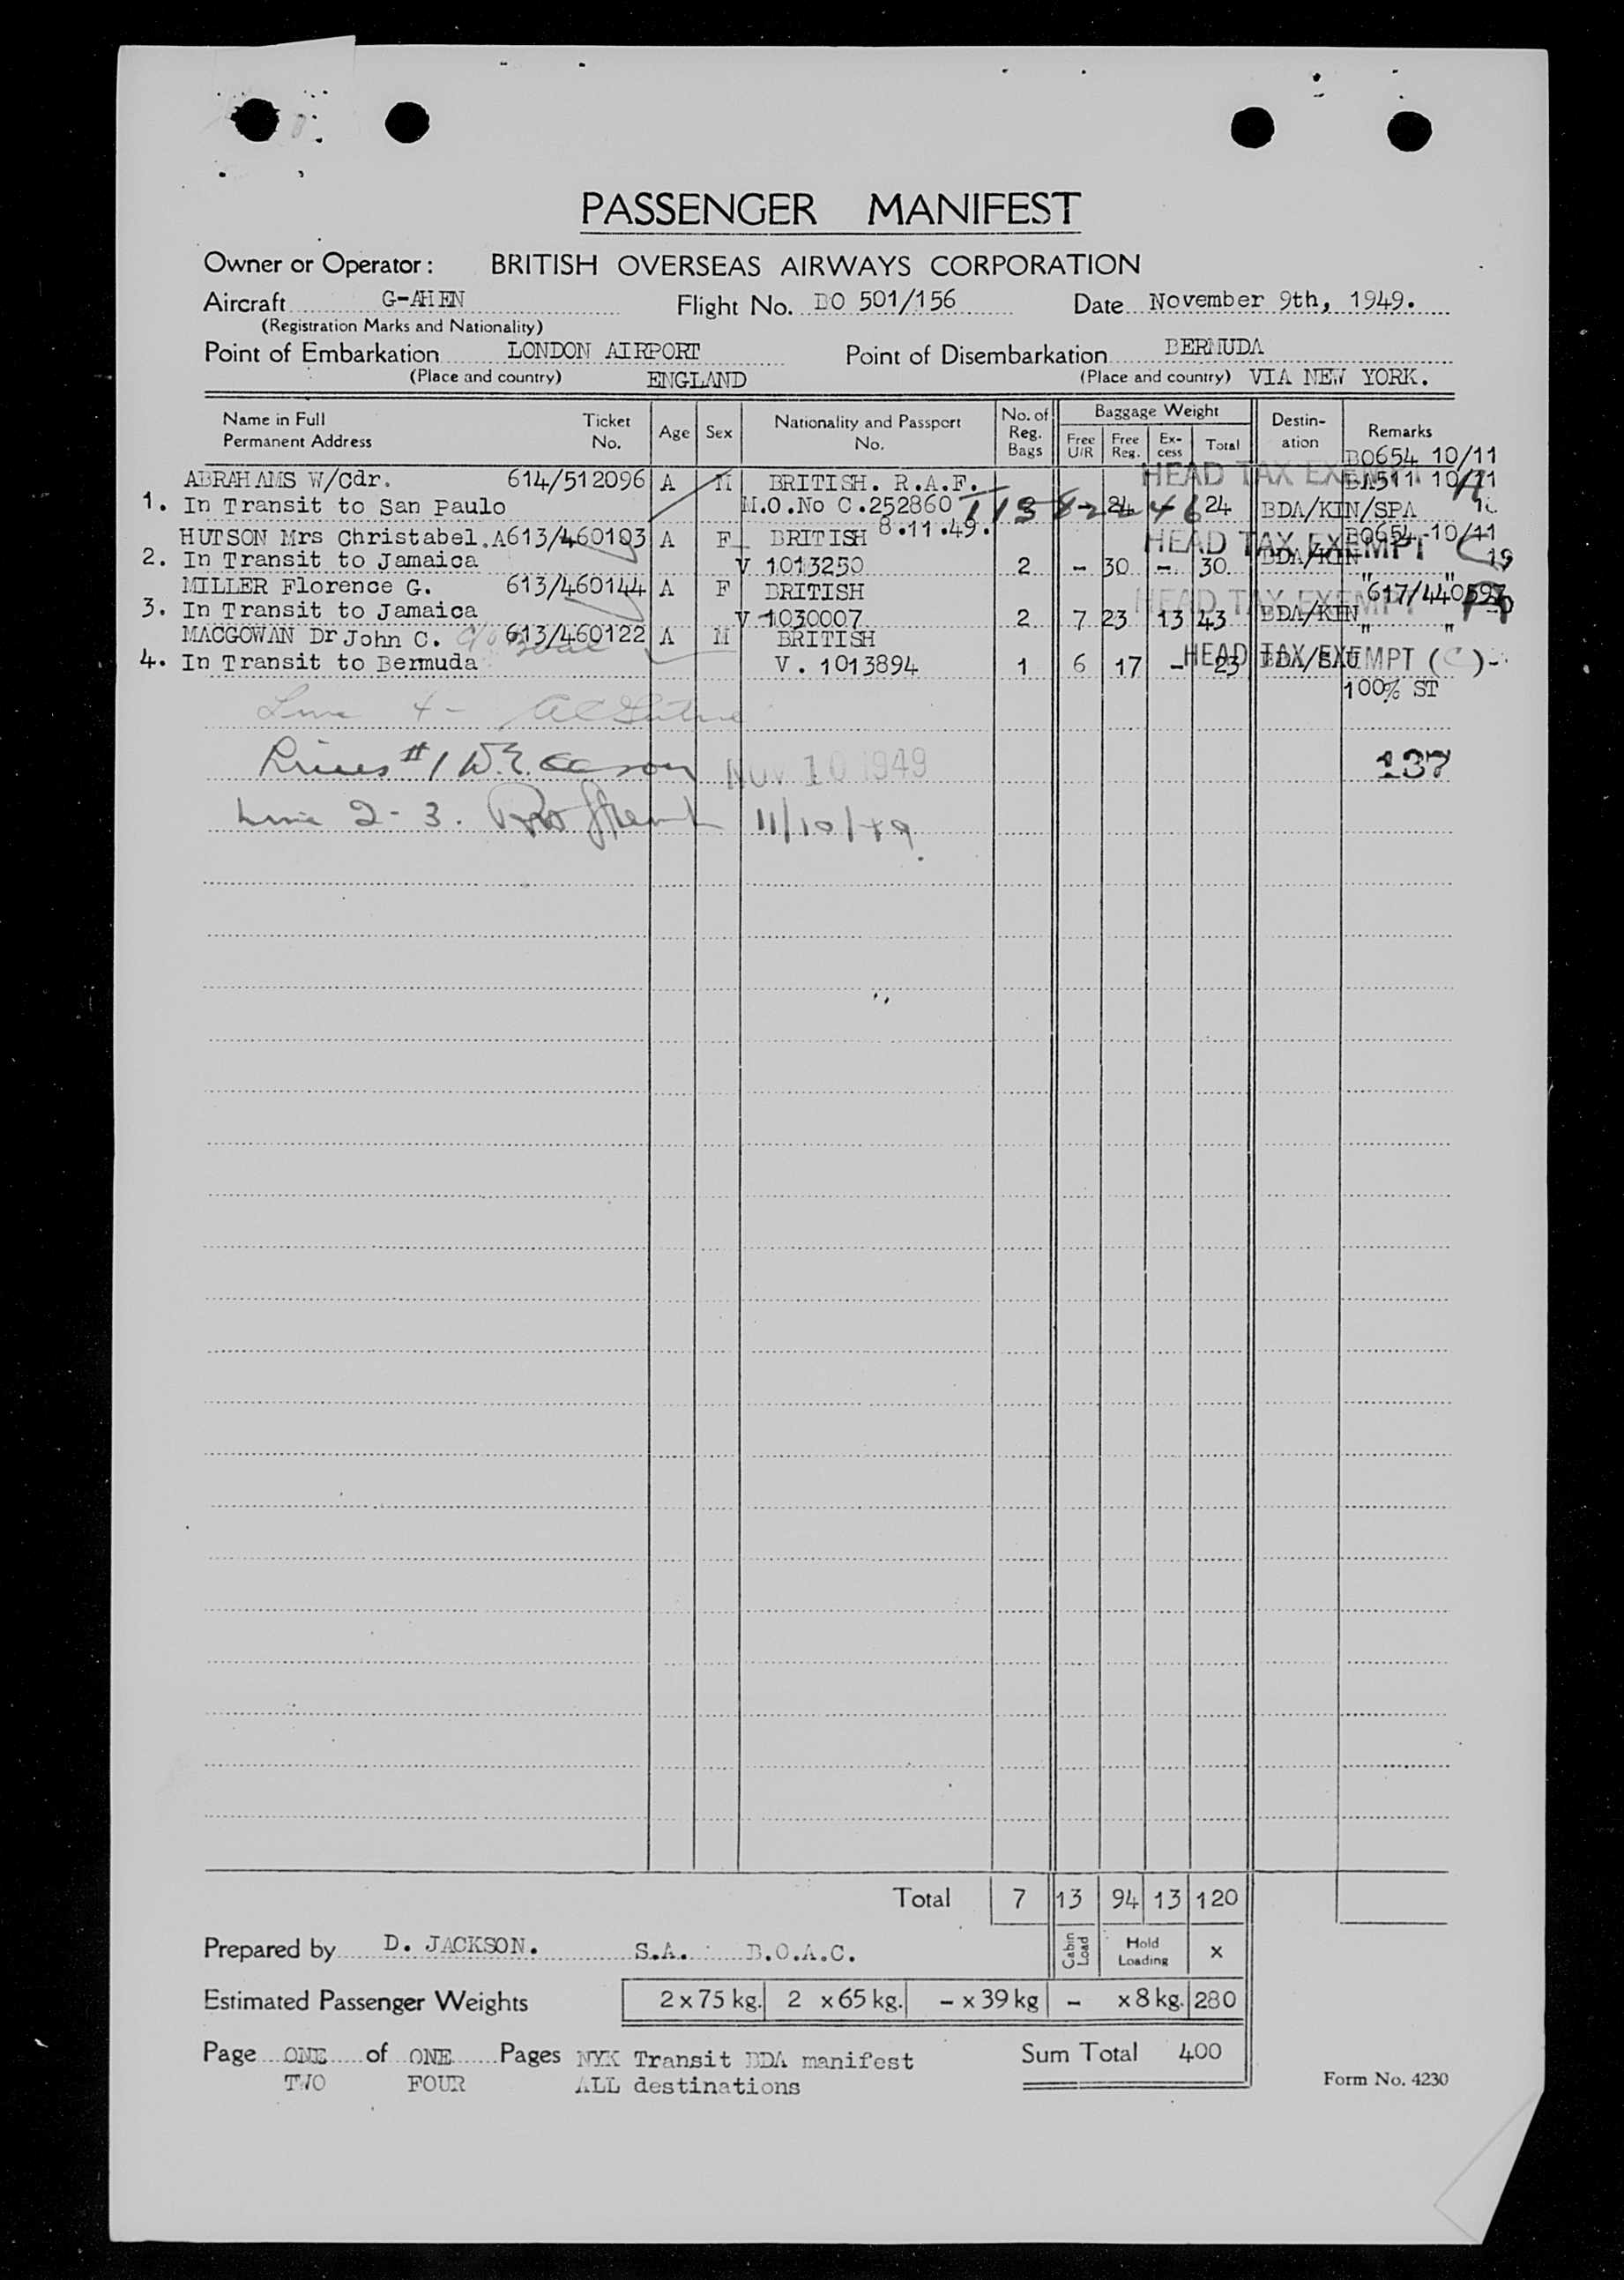 PASSENGER MANIFEST
Owner or Operator: BRITISH OVERSEAS AIRWAYS CORPORATION
Aircraft G-AHEN Flight No. BO 501/156 Date November 9th, 1949.
(Registration Marks and Nationality)
Point of Embarkation LONDON AIRPORT Point of Disembarkation BERMUDA
(Place and country) ENGLAND (Place and country) VIA NEW YORK.
Name in Full Permanent Address Ticket No. Age Sex Nationality and Passport No. No. of Reg. Bags Baggage Weight Free U/R Free Reg. Excess Total Destination Remarks
BO654 10/11
ABRAHAMS W/Cdr. 614/512096 A M BRITISH. R.A.F. HEAD TAX EXEMPT BA511 10/11
1. In Transit to San Paulo M.O.No C.252860 - 24 - 24 BDA/KIN/SPA
8.11.49.
HUTSON Mrs Christabel.A 613/460103 A F BRITISH HEAD TAX EXEMPT BO654 10/11
2. In Transit to Jamaica V 1013250 2 - 30 - 30 BDA/KIN " "
MILLER Florence G. 613/460144 A F BRITISH HEAD TAX EXEMPT 617/440597
3. In Transit to Jamaica V 1030007 2 7 23 13 43 BDA/KIN " "
MACGOWAN Dr John C. 613/460122 A M BRITISH
4. In Transit to Bermuda V. 1013894 1 6 17 - 23 BDA/SAU HEAD TAX EXEMPT (C)
100% ST
Line 4 -
Lines #1 NOV 10 1949 137
Line 2-3. 11/10/49
Total 7 13 94 13 120
Prepared by D. JACKSON. S.A. B.O.A.C. Cabin Load Hold Loading x
Estimated Passenger Weights 2 x 75 kg. 2 x 65 kg. - x 39 kg - x 8 kg. 280
Page ONE of ONE Pages NYK Transit BDA manifest Sum Total 400
TWO FOUR ALL destinations Form No. 4230